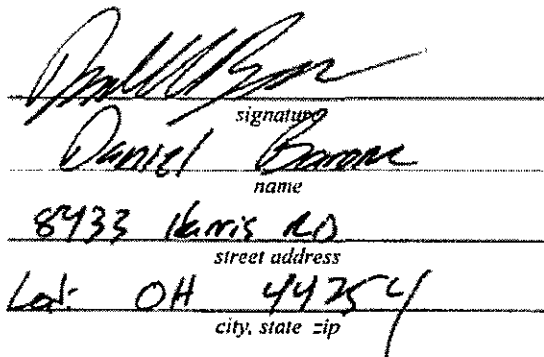 signature
Daniel Barone
name
8933 Harris RD
street address
Lodi OH 44254
city, state zip